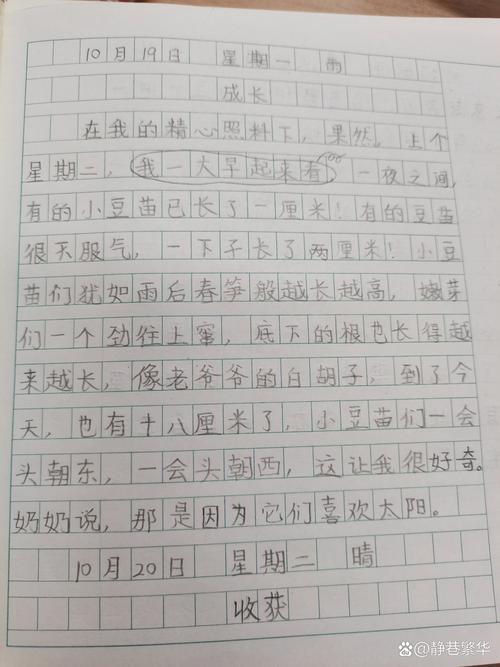 10月19日 星期一 雨
成长
在我的精心照料下，果然，上个
星期二，我一大早起来看，一夜之间，
有的小豆苗已长了一厘米！有的豆苗
很不服气，一下子长了两厘米！小豆
苗们犹如雨后春笋般越长越高，嫩芽
们一个劲往上窜，底下的根也长得越
来越长，像老爷爷的白胡子，到了今
天，也有十八厘米了，小豆苗们一会
头朝东，一会头朝西，这让我很好奇。
奶奶说，那是因为它们喜欢太阳。
10月20日 星期二 晴
收获
静巷繁华